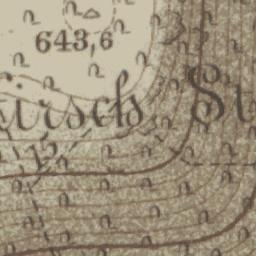 643,6
irsch St